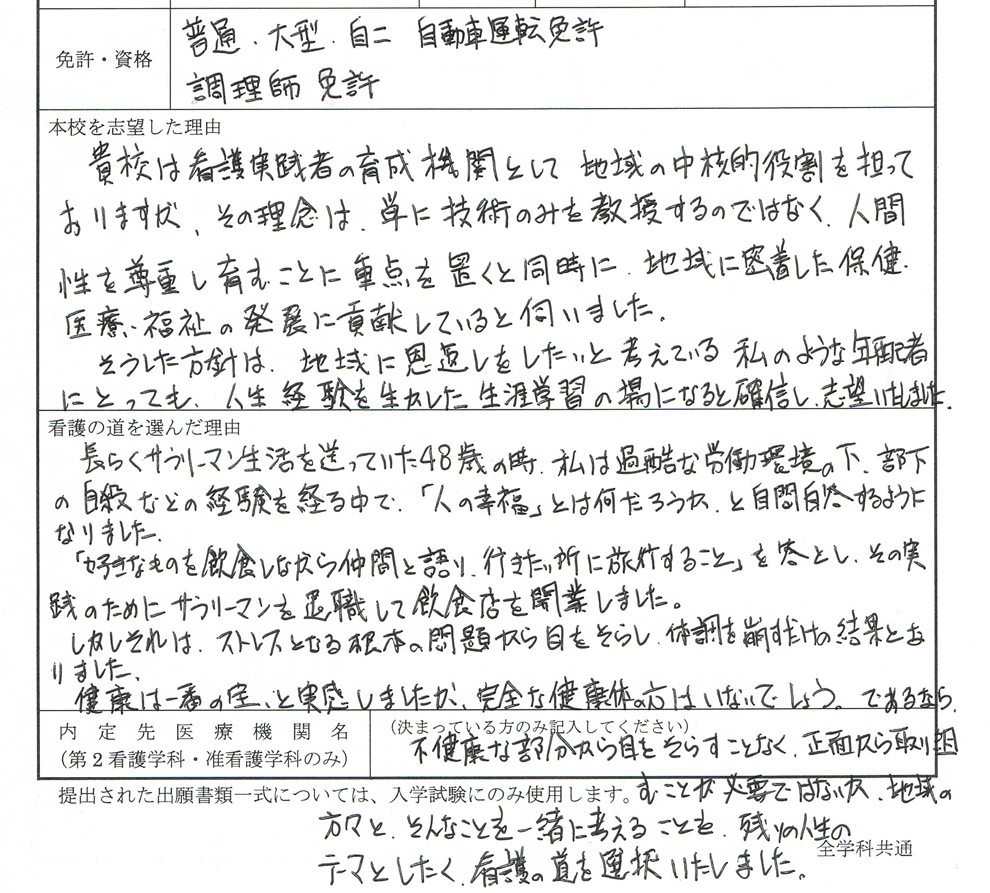 免許・資格
普通．大型．自二 自動車運転免許
調理師 免許
本校を志望した理由
貴校は看護実践者の育成機関として 地域の中核的役割を担って
おりますが、その理念は、単に技術のみを教授するのではなく、人間
性を尊重し育むことに重点を置くと同時に、地域に密着した保健、
医療、福祉の発展に貢献していると伺いました。
そうした方針は、地域に恩返しをしたいと考えている 私のような年配者
にとっても、人生経験を生かした生涯学習の場になると確信し、志望いたしました。
看護の道を選んだ理由
長らくサラリーマン生活を送っていた48歳の時、私は過酷な労働環境の下、部下
の自殺などの経験を経る中で、「人の幸福」とは何だろうか、と自問自答するように
なりました。
「好きなものを飲食しながら仲間と語り、行きたい所に旅行すること」を答とし、その実
践のためにサラリーマンを退職して飲食店を開業しました。
しかしそれは、ストレスとなる根本の問題から目をそらし、体調を崩すだけの結果とあ
りました。
健康は一番の宝、と実感しましたが、完全な健康体の方はいないでしょう。であるなら、
内定先医療機関名
（第２看護学科・准看護学科のみ）
（決まっている方のみ記入してください）
不健康な部分から目をそらすことなく、正面から取り組
提出された出願書類一式については、入学試験にのみ使用します。
むことが必要ではないか、地域の
方々と、そんなことを一緒に考えることを、残りの人生の
全学科共通
テーマとしたく、看護の道を選択いたしました。